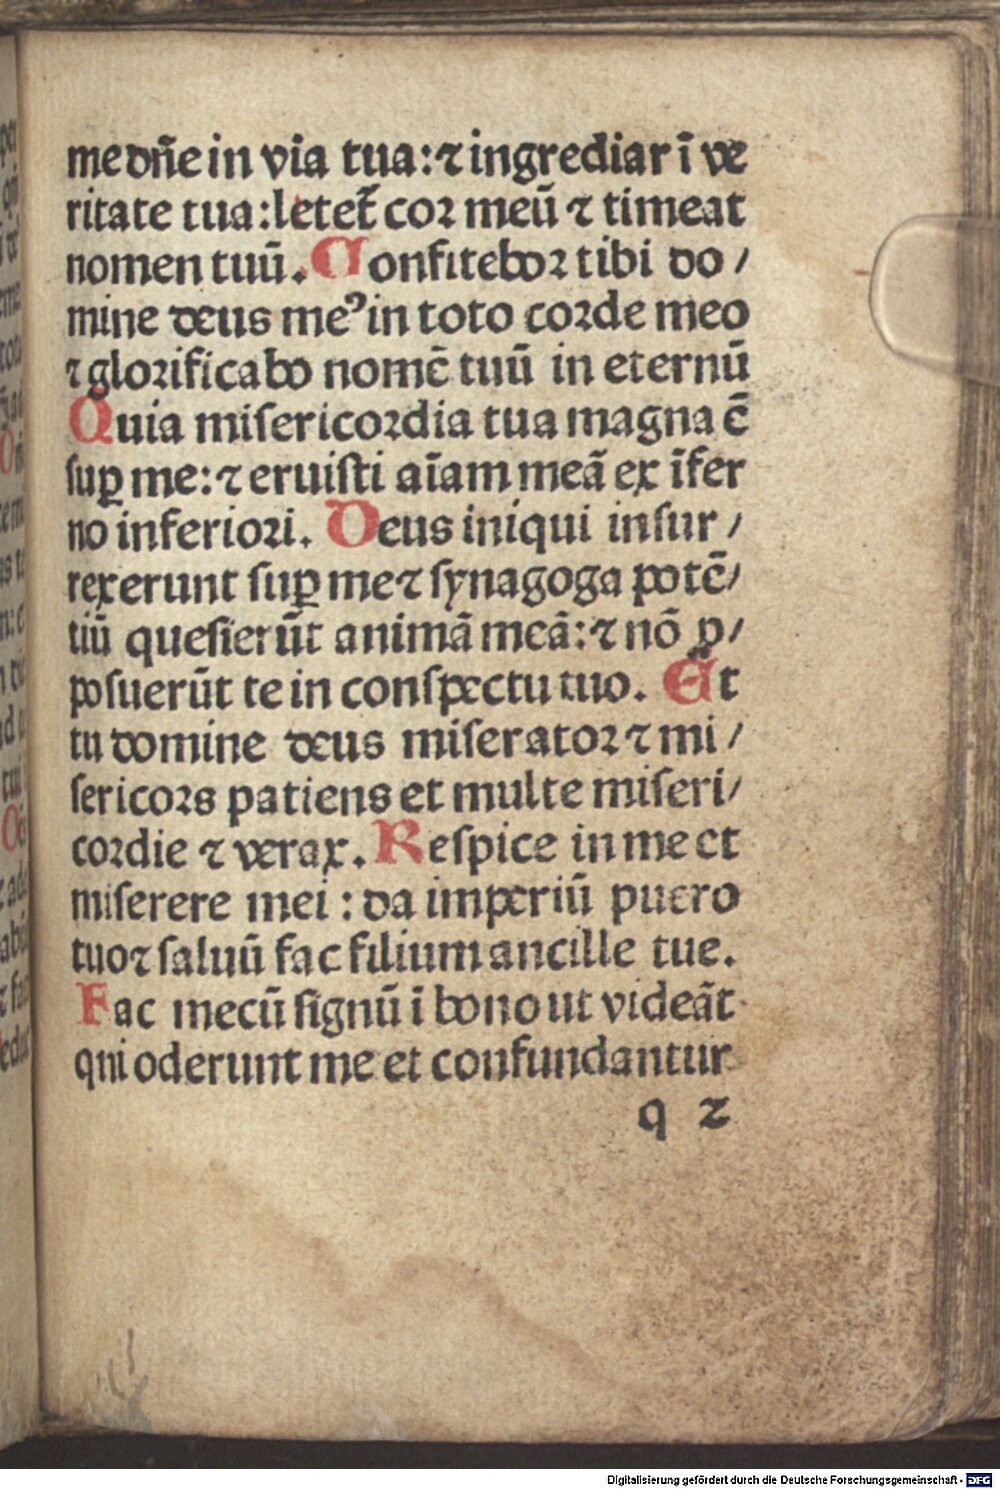 me dñe in vīa tua: ⁊ ingrediar ī ve
ritate tua: letet᷑ coꝛ meū ⁊ timeat
nomen tuū. Confiteboꝛ tibi do /
mine deus meꝰ in toto coꝛde meo
⁊ gloꝛificabo nomē tuū in eternū
Quia miſericoꝛdia tua magna ē
ſuꝑ me: ⁊ eruiſti aīam meā ex īfer
no inferioꝛi. Deus iniqui inſur /
rexerunt ſuꝑ me ⁊ ſynagoga potē/
tiū queſierūt animā meā: ⁊ nō ꝓ/
poſuerūt te in conſpectu tuo. Et
tu domine deus miſeratoꝛ ⁊ mi /
ſericoꝛs patiens et multe miſeri/
coꝛdie ⁊ verax. Reſpice in me et
miſerere mei : da imperiū puero
tuo ⁊ ſaluū fac filium ancille tue.
Fac mecū ſignū ī bono ut videāt
qui oderunt me et confundantur
q 2
Digitalisierung gefördert durch die Deutsche Forschungsgemeinschaft - DFG